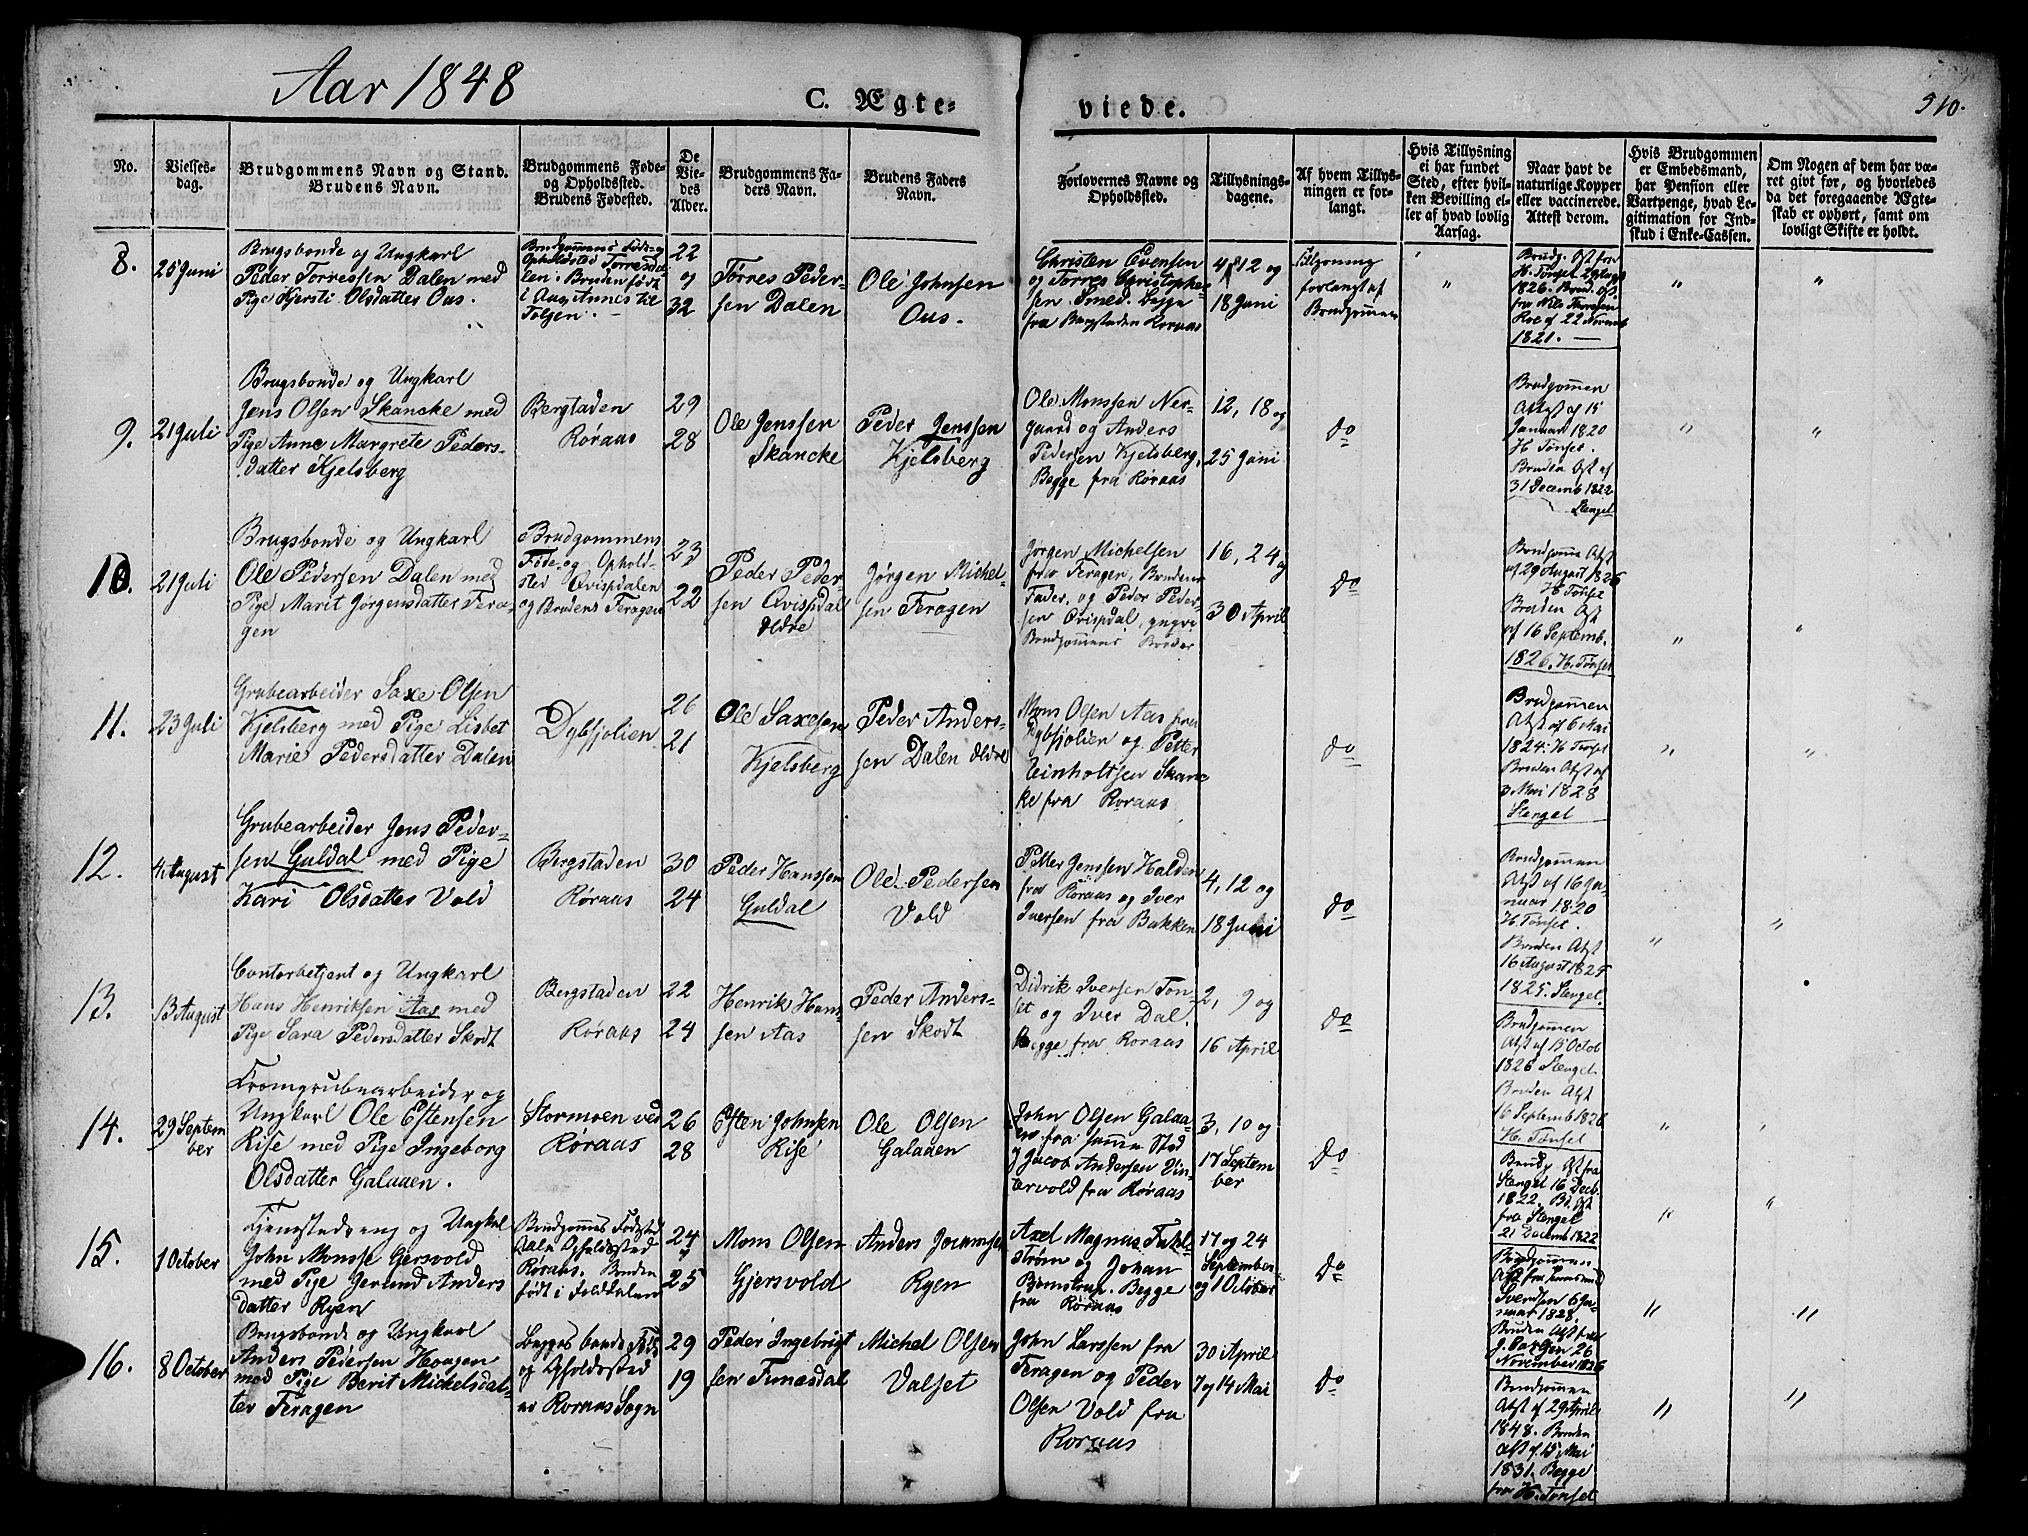 Aar 1848
C. Ægte-
viede.
510.
No.
Vielses-
dag.
Brudgommens Navn og Stand.
Brudens Navn.
Brudgommens Føde-
og Opholdssted.
Brudens Fødested.
De
Vie-
des
Alder.
Brudgommens Fa-
ders Navn.
Brudens Faders
Navn.
Forlovernes Navne og
Opholdssted.
Tillysnings-
dagene.
Af hvem Tillys-
ningen er for-
langt.
Hvis Tillysning
ei har fundet
Sted, efter hvil-
ken Bevilling el-
ler af hvad lovlig
Aarsag.
Naar havt de
naturlige Kopper
eller vaccinerede.
Attest derom.
Hvis Brudgommen
er Embedsmand,
har Pension eller
Vartpenge, hvad Le-
gitimation for Ind-
skud i Enke-Cassen.
Om Nogen af dem har væ-
ret givt før, og hvorledes
da det foregaaende Ægte-
skab er ophørt, samt om
lovligt Skifte er holdt.
8.
25 Juni
Brugsbonde og Ungkarl
Peder Torressen Dalen med
Pige Kjersti Olsdatter Ous.
Brudgommens Føde og
Opholdssted Torresda-
len. Bruden født
i
Tolgen.
22
og
32
Tørres Peder-
sen Dalen
Ole Johnsen
Ous.
Christen Evensen
og Torres Christophe-
sen Smed. begge
fra Bergstaden Roraas
4, 12 og
18 Juni
Lysning
forlangt af
Brudgommen
"
"
"
Brudg. Atst fra
H. Tønset 29 Aug
1826. Brud. Atst
fra Nils
Roe af 22 Novemb
1821.
9.
21 Juli
Brugsbonde og Ungkarl
Jens Olsen Skancke med
Pige Anne Margrete Peders-
datter Kjelsberg
Bergtaden
Røraas
29
28
Ole Jenssen
Skancke
Peder Jenssen
Kjelsberg
Ole Monssen Ner-
gaard og Anders
Pedersen Kjelsberg,
Begge fra Røraas
12, 18 og
25 Juni
do
"
"
Brudgommen
Atst af 15
Januar 1820
H. Tønset.
Bruden Atst af
31 Decemb 1822
Stengel
10.
21 Juli
Brugsbonde og Ungkarl
Ole Pedersen Dalen med
Pige Marit Jørgensdatter Fera-
gen
Brudgommens
Føde og Ophold-
sted Qvisdalen
og Brudens Feragen
23
22
Peder Peder-
sen Qvisdal
Ældre
Jørgen Michel-
sen Feragen
Jørgen Michelsen
fra Feragen, Brudens
Fader, og Peder Peder-
sen Qvisdal, yngre
Brudgommens Broder
16, 24 og
30 April
do
"
"
Brudgomm Atst
af 29 August 1826
H Tønset
Bruden Atst
af 16 Septemb.
1826. H. Tønset
11.
23 Juli
Grubearbeider Saxe Olsen
Kjelsberg med Pige Lisbet
Marie Pedersdatter Dalen
Dybsjolien
26
21
Ole Saxesen
Kjelsberg
Peder Anders-
sen Dalen Ældre
Mons Olsen Aas fra
Dybsjolien og Petter
Leinholtsen Skanc-
ke fra Roraas
do
"
"
Brudgommen
Atst af 6 Mai
1824. H Tønset
Bruden Atst af
3 Mai 1828
Stengel
12.
4 August
Grubearbeider Jens Peder-
sen Guldal med Pige
Kari Olsdatter Vold
Bergstaden
Røraas
30
24
Peder Hanssen
Guldal
Ole Pedersen
Vold
Petter Jenssen Halden
fra Røraas og Iver
Iversen fra Bakken
4, 12 og
18 Juni
do
"
"
Brudgommen
Atst af 16 Ja-
nuar 1820
H. Tønset.
Bruden Atst
16 August 1825
1825. Stengel
13.
13 August
Contorbetjent og Ungkarl
Hans Henriksen Aas med
Pige Sara Pedersdatter Skodt
Bergstaden
Røraas
22
24
Henrik Hans-
sen Aas
Peder Anders-
sen Skodt
Didrik Iversen Ton-
set og Iver Dal.
Begge fra Roraas
2, 9 og
16 April
do
Brudgommen
Atst af 15 Octob
1826 Stengel
Bruden Atst
16 Septemb 1826
H. Tønset
14.
29 Septem
ber
Kromgrubearbeider og
Ungkarl Ole Estensen
Rise med Pige Ingeborg
Olsdatter Galaaen.
Stormoen ved
Røraas
26
28
Esten Johnsen
Rise
Ole Olsen
Galaaen
John Olsen Galaa-
en fra samme Sted
og Jacob Andersen Vin-
tervold fra Røraas
3, 10 og
17 Septem
ber
Do
"
"
Brudg Atst fra
Stengel 16 Decb.
1822, Br. Atst
fra Stengel
21 Decemb 1822
15.
1 October
og Ungkal
John Monsse Gersvold
med Pige Gerund Anders
datter Ryen
Brudgommes Fødested
Dalen Opholdssted
Røraas. Bruden
født i Folddalen
24
25
Mons Olsen
Gjersvold
Anders Joramsen
Ryen
Axel Magnus Fahl-
strøm og Johan
Bornstrup. Begge
fra Røraas
17 og 24
September
og 1 October
Do
"
"
Brudgommen
Atst fra
Svendsen 6 Ja-
nuar 1828
Bruden Atst fra
26
November 1826
16.
8 October
Brugsbonde og Ungkarl
Anders Pedersen Hougan
med Pige Berit Michelsdat-
ter Feragen
Begges baade Føde
og Opholdssted
er Roraas Sogn
29
19
Peder Ingebrigt
sen Funesdal
Michel Olsen
Valset
John Larssen fra
Feragen og Peder
Olsen Vold fra
Roraas
30 April
7 og 14 Mai
Do
"
"
Brudgommen
Atst af 29 April
1848. Bruden
atst af 15 Mai
1831. Begge
fra H. Tønset